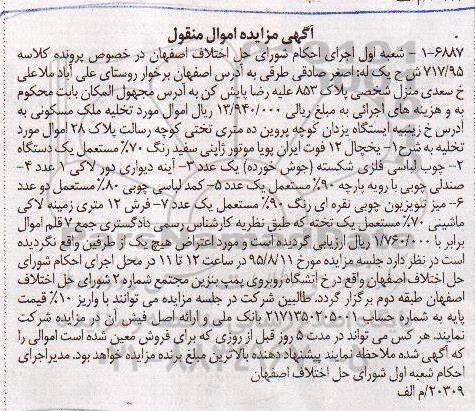 آگهی مزایده اموال منقول
۱-۶۸۸۷ - شعبه اول اجرای احکام شورای حل اختلاف اصفهان در خصوص پرونده کلاسه
۷۱۷/۹۵ ش ح یک له: اصغر صادقی طرقی به آدرس اصفهان برخوار روستای علی آباد ملاعلی
خ سعدی منزل شخصی پلاک ۸۵۳ علیه رضا پایش کن به آدرس مجهول المکان بابت محکوم
به و هزینه های اجرائی به مبلغ ریالی ۱۳/۹۴۰/۰۰۰ ریال اموال مورد تخلیه ملک مسکونی به
آدرس خ زینبیه ایستگاه یزدان کوچه پروین ده متری تختی کوچه رسالت پلاک ۲۸ اموال مورد
تخلیه به شرح ۱- یخچال ۱۲ فوت ایران پویا موتور ژاپنی سفید رنگ ۷۰٪ مستعمل یک دستگاه
۲- چوب لباسی فلزی شکسته (جوش خورده) یک عدد ۳- آینه دیواری دور لاکی ۱ عدد ۴-
صندلی چوبی با رویه پارچه ۹۰٪ مستعمل یک عدد ۵- کمد لباسی چوبی ۸۰٪ مستعمل دو عدد
۶- میز تلویزیون چوبی نقره ای رنگ ۹۰٪ مستعمل یک عدد ۷- فرش ۱۲ متری زمینه لاکی
ماشینی ۷۰٪ مستعمل یک تخته که طبق نظریه کارشناس رسمی دادگستری جمع ۷ قلم اموال
برابر با ۱/۷۶۰/۰۰۰ ریال ارزیابی گردیده است و مورد اعتراض هیچ یک از طرفین واقع نگردیده
است در نظر دارد جلسه مزایده مورخ ۹۵/۸/۱۱ در ساعت ۱۲ تا ۱۱ در محل اجرای احکام شورای
حل اختلاف اصفهان واقع در خ آتشگاه روبروی پمپ بنزین مجتمع شماره ۲ شورای حل اختلاف
اصفهان طبقه دوم برگزار گردد. طالبین شرکت در جلسه مزایده می توانند با واریز ۱۰٪ قیمت
پایه به شماره حساب ۲۱۷۱۳۵۰۲۰۵۰۰۱ بانک ملی و ارائه اصل فیش آن در مزایده شرکت
نمایند. هر کس می تواند در مدت ۵ روز قبل از روزی که برای فروش معین شده است اموالی را
که آگهی شده ملاحظه نمایند پیشنهاد دهنده بالاترین مبلغ برنده مزایده خواهد بود. مدیر اجرای
احکام شعبه اول شورای حل اختلاف اصفهان
۲۰۳۰۹/م الف